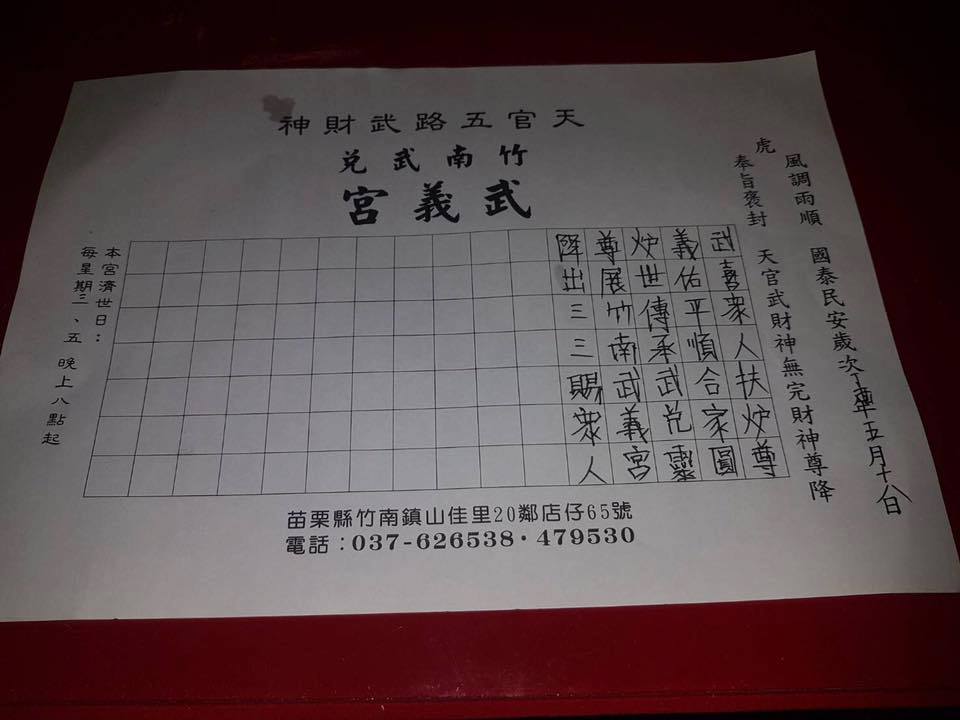 天官五路武財神
竹南武兌
武義宮
風調雨順 國泰民安歲次丁酉年五月十八日
虎
奉旨褒封 天官武財神無完財神尊降
武喜眾人扶炉尊
義佑平順合家圓
炉世傳承武兌靈
尊展竹南武義宮
降出三三賜眾人
本宮濟世日：
每星期三、五 晚上八點起
苗栗縣竹南鎮山佳里20鄰店仔65號
電話：037-626538·479530